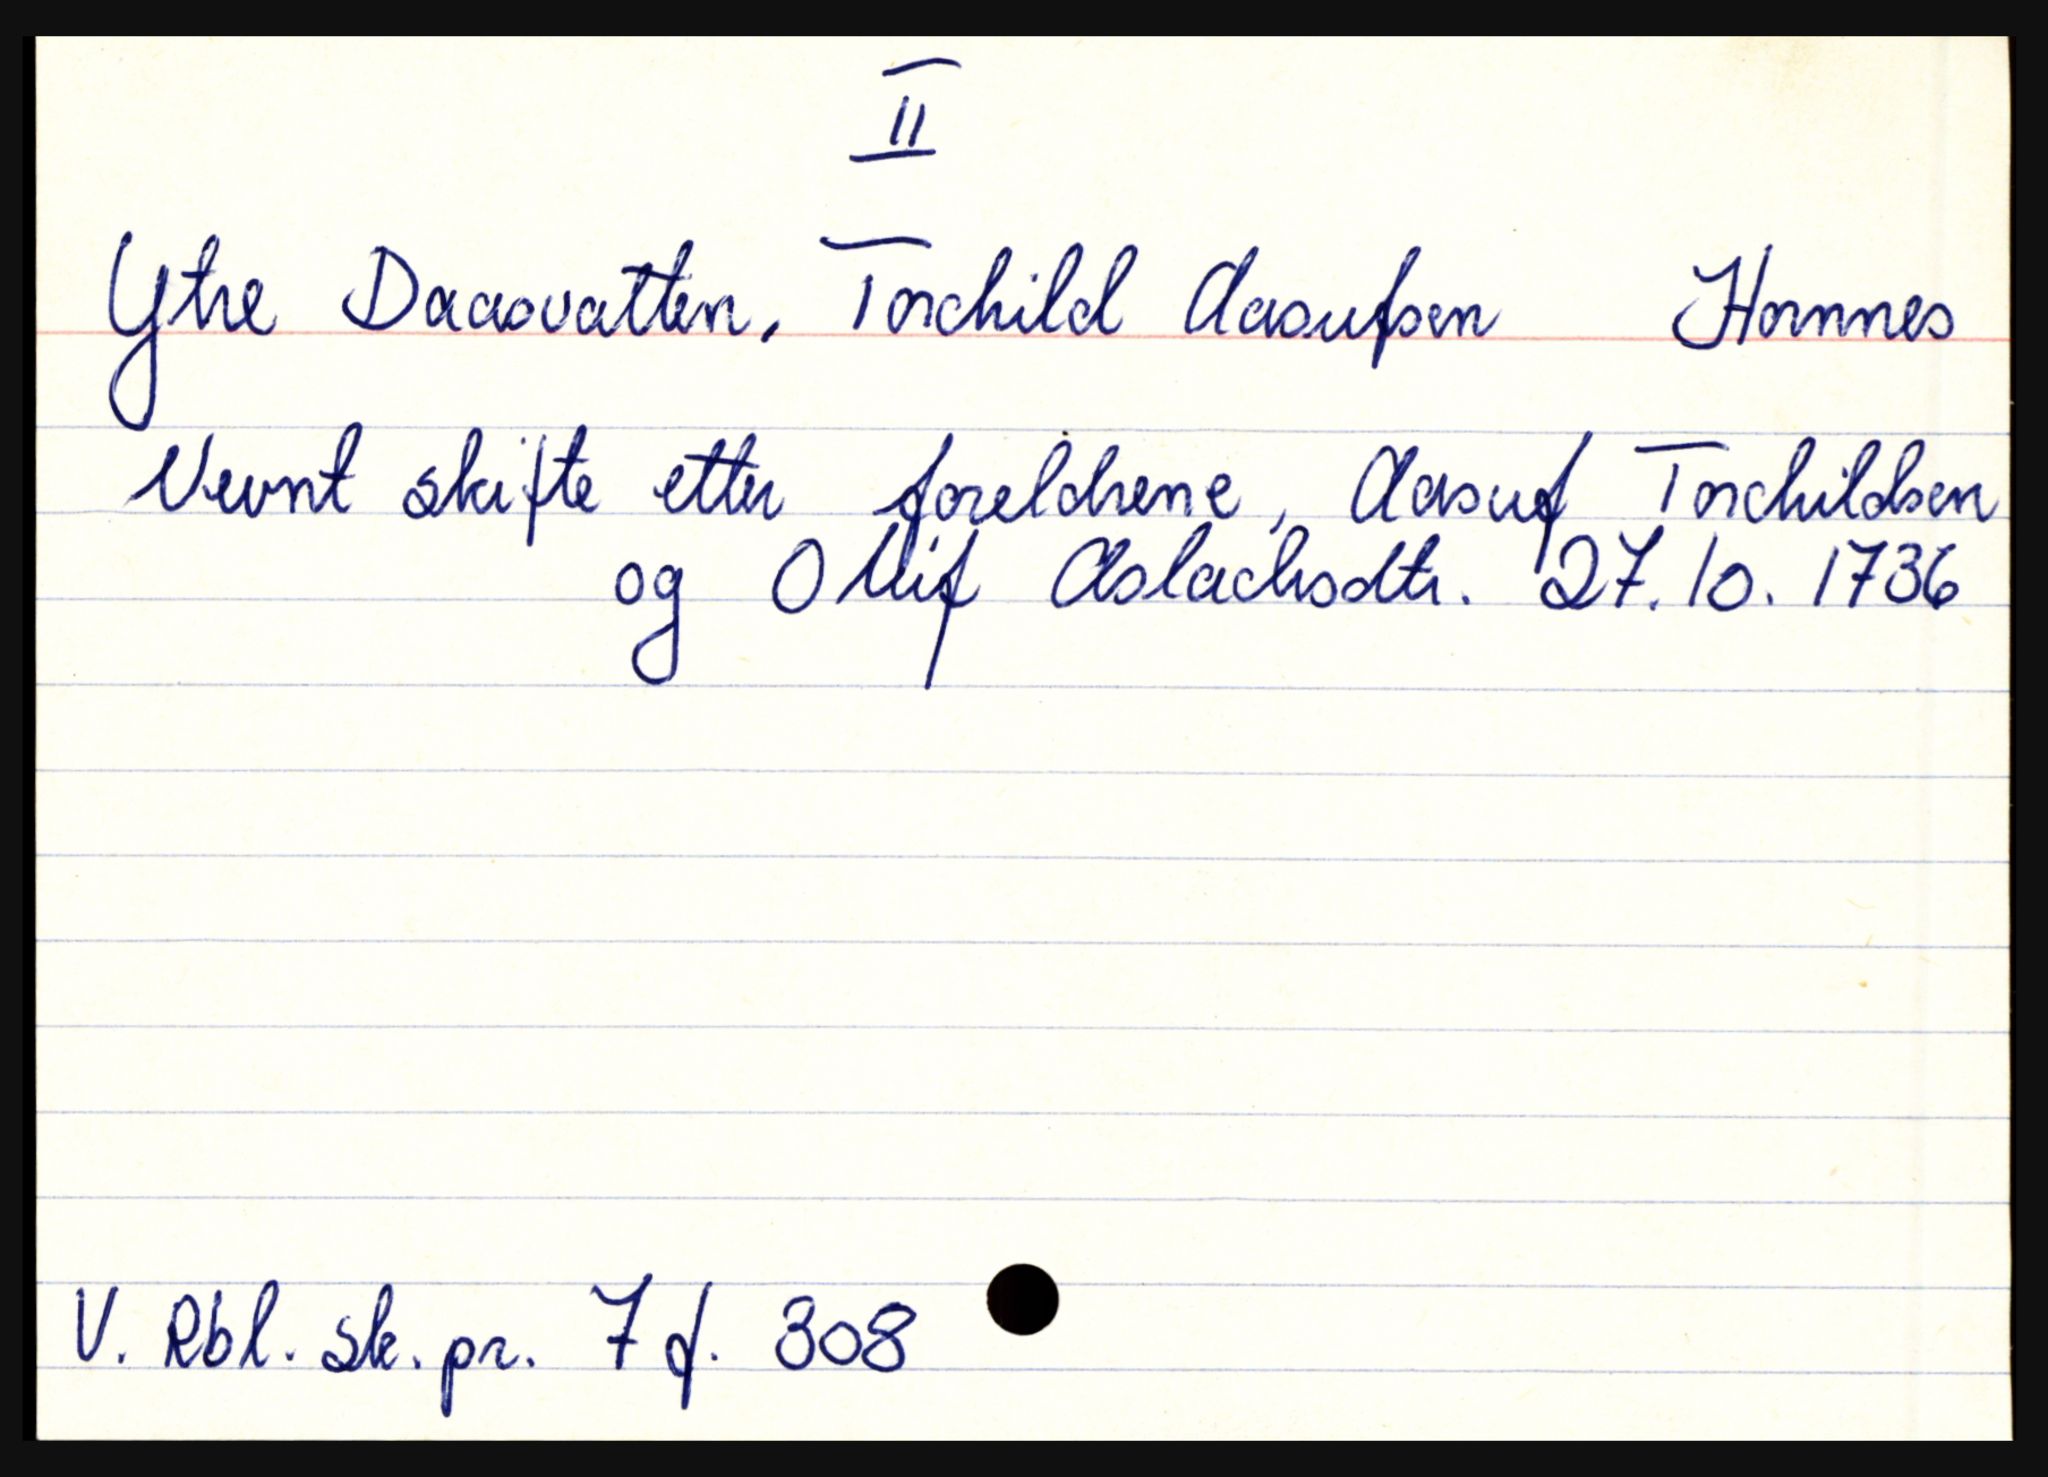 II
Ytre Daasvatten, Torchild Aasufsen Hornnes
Nevnt skifte etter foreldrene, Aasuf Torchildsen
og Olluf Aslachsdtr. 27.10.1736
V. Rbl. sk. pr. 7 f. 308